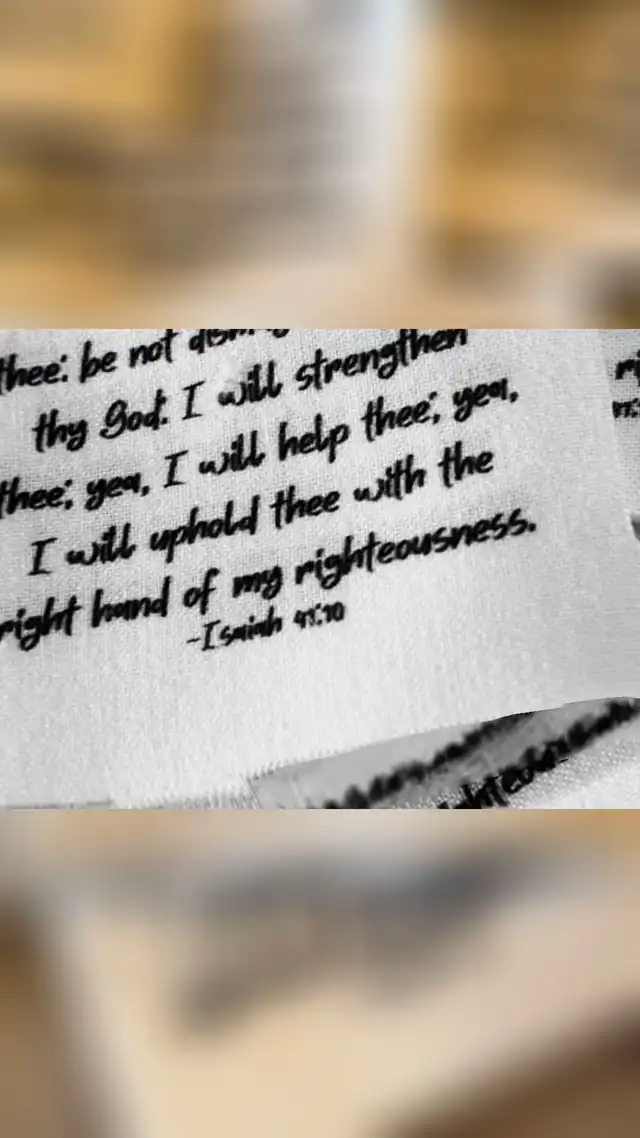 thee: be not
thy God: I will strengthen
thee; yea, I will help thee; yea,
I will uphold thee with the
right hand of my righteousness.
-Isaiah 41:10